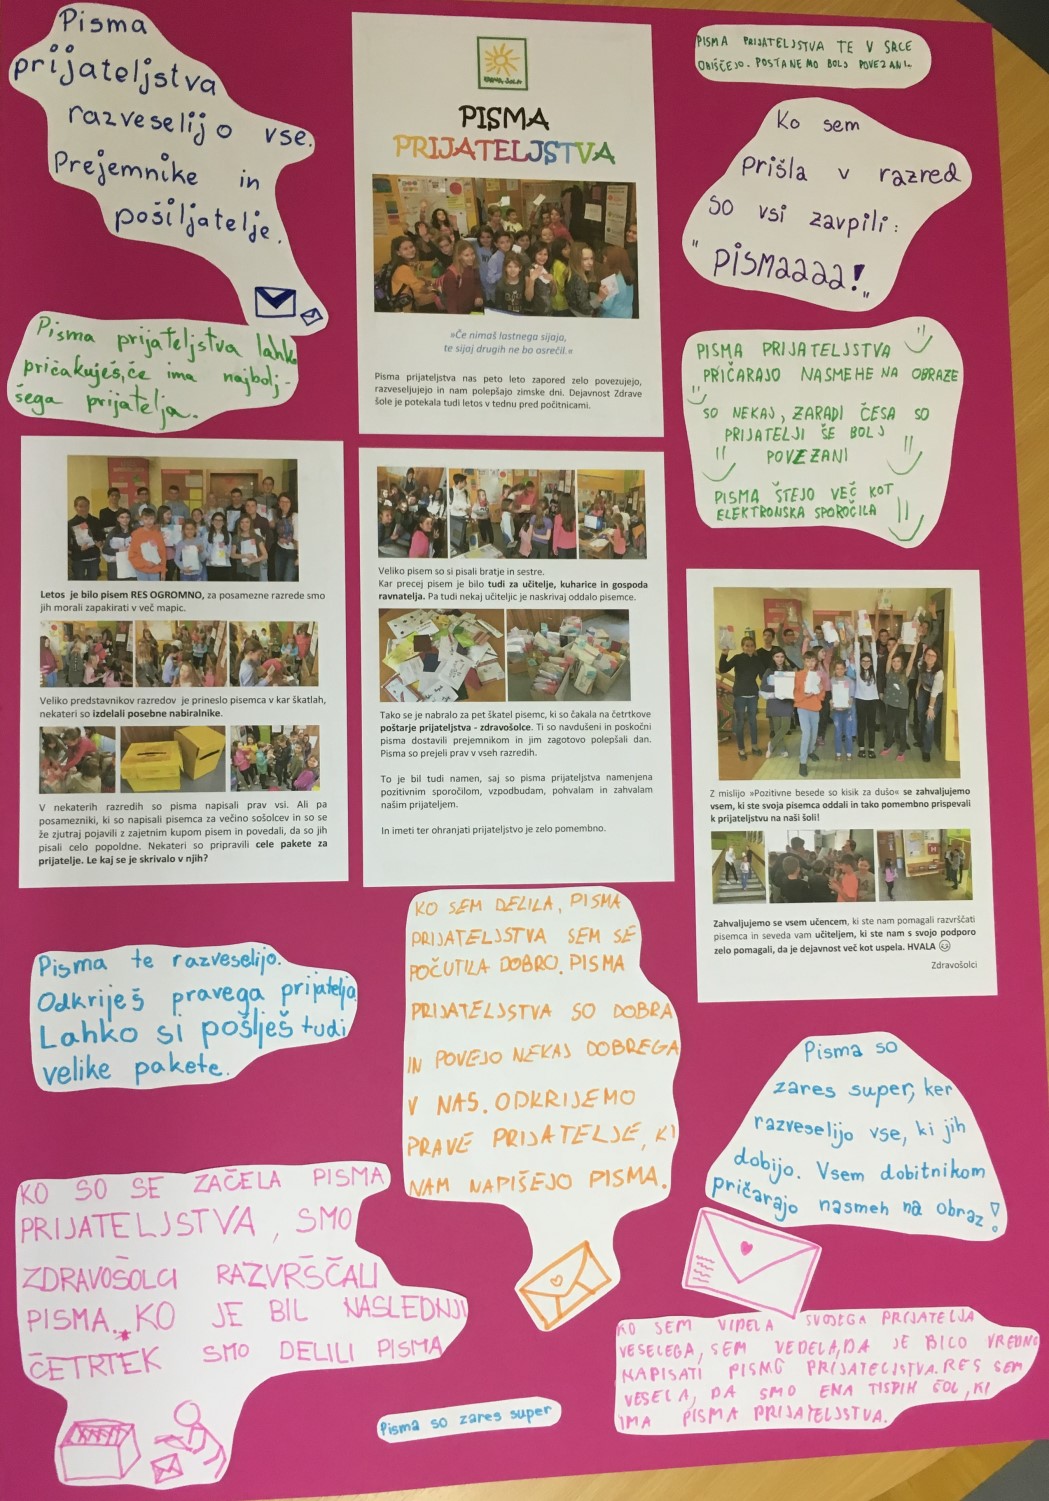 Pisma
prijateljstva
razveselijo vse.
Prejemnike in
pošiljatelje.
Pisma prijateljstva lahko
pričakuješ, če ima najbolj-
šega prijatelja.
ZDRAVA ŠOLA
PISMA
PRIJATELJSTVA
»Če nimaš lastnega sijaja,
te sijaj drugih ne bo osrečil.«
Pisma prijateljstva nas peto leto zapored zelo povezujejo,
razveseljujejo in nam polepšajo zimske dni. Dejavnost Zdrave
šole je potekala tudi letos v tednu pred počitnicami.
PISMA PRIJATELJSTVA TE V SRCE
OBIŠČEJO. POSTANEMO BOLJ POVEZANI.
Ko sem
prišla v razred
so vsi zavpili:
"PISMAaaaa!"
PISMA PRIJATELJSTVA
PRIČARAJO NASMEHE NA OBRAZE
SO NEKAJ, ZARADI ČESA SO
PRIJATELJI ŠE BOLJ
POVEZANI
PISMA ŠTEJO VEČ KOT
ELEKTRONSKA SPOROČILA
Letos je bilo pisem RES OGROMNO, za posamezne razrede smo
jih morali zapakirati v več mapic.
Veliko predstavnikov razredov je prineslo pisemca v kar škatlah,
nekateri so izdelali posebne nabiralnike.
V nekaterih razredih so pisma napisali prav vsi. Ali pa
posamezniki, ki so napisali pisemca za večino sošolcev in so se
že zjutraj pojavili z zajetnim kupom pisem in povedali, da so jih
pisali celo popoldne. Nekateri so pripravili cele pakete za
prijatelje. Le kaj se je skrivalo v njih?
Veliko pisem so si pisali bratje in sestre.
Kar precej pisem je bilo tudi za učitelje, kuharice in gospoda
ravnatelja. Pa tudi nekaj učiteljic je naskrivaj oddalo pisemce.
Tako se je nabralo za pet škatel pisemc, ki so čakala na četrtkove
poštarje prijateljstva - zdravošolce. Ti so navdušeni in poskočni
pisma dostavili prejemnikom in jim zagotovo polepšali dan.
Pisma so prejeli prav v vseh razredih.
To je bil tudi namen, saj so pisma prijateljstva namenjena
pozitivnim sporočilom, vzpodbudam, pohvalam in zahvalam
našim prijateljem.
In imeti ter ohranjati prijateljstvo je zelo pomembno.
Z mislijo »Pozitivne besede so kisik za dušo« se zahvaljujemo
vsem, ki ste svoja pisemca oddali in tako pomembno prispevali
k prijateljstvu na naši šoli!
Zahvaljujemo se vsem učencem, ki ste nam pomagali razvrščati
pisemca in seveda vam učiteljem, ki ste nam s svojo podporo
zelo pomagali, da je dejavnost več kot uspela. HVALA ☺
Zdravošolci
Pisma te razveselijo.
Odkriješ pravega prijatelja.
Lahko si pošlješ tudi
velike pakete.
KO SEM DELILA, PISMA
PRIJATELJSTVA SEM SE
POČUTILA DOBRO. PISMA
PRIJATELJSTVA SO DOBRA
IN POVEJO NEKAJ DOBREGA
V NAS. ODKRIJEMO
PRAVE PRIJATELJE, KI
NAM NAPIŠEJO PISMA.
Pisma so
zares super, ker
razveselijo vse, ki jih
dobijo. Vsem dobitnikom
pričarajo nasmeh na obraz!
KO SO SE ZAČELA PISMA
PRIJATELJSTVA, SMO
ZDRAVOŠOLCI RAZVRŠČALI
PISMA. KO JE BIL NASLEDNJI
ČETRTEK SMO DELILI PISMA
Pisma so zares super
KO SEM VIDELA SVOJEGA PRIJATELJA
VESELEGA, SEM VEDELA, DA JE BILO VREDNO
NAPISATI PISMO PRIJATELJSTVA. RES SEM
VESELA, DA SMO ENA TISTIH ŠOL, KI
IMA PISMA PRIJATELJSTVA.